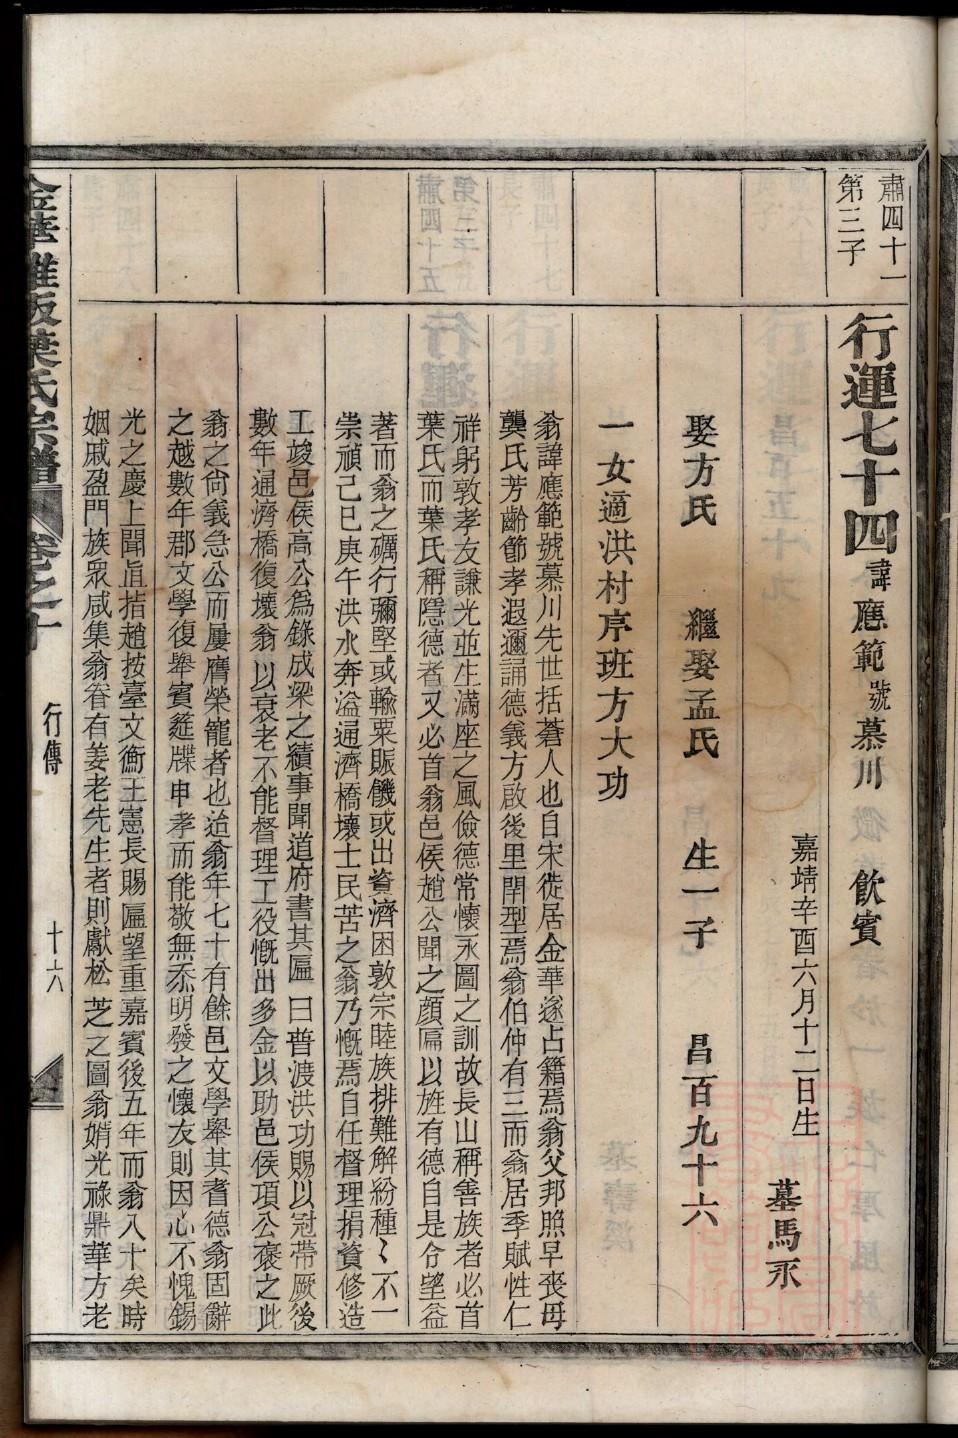 肅四十一
第三子
行運七十四諱應範號慕川 飲賓
嘉靖辛酉六月十二日生 墓馬永
娶方氏 繼娶孟氏 生一子 昌百九十六
一女適洪村序班方大功
翁諱應範號慕川先世括蒼人也自宋徙居金華遂占籍焉翁父邦照早喪母
龔氏芳齡節孝遐邇誦德義方啟後里閈型焉翁伯仲有三而翁居季賦性仁
祥躬敦孝友謙光並生滿座之風儉德常懷永圖之訓故長山稱善族者必首
葉氏而葉氏稱隱德者又必首翁邑侯趙公聞之顏匾以旌有德自是令望益
著而翁之礪行彌堅或輸粟賑饑或出資濟困敦宗睦族排難解紛種〻不一
崇禎己巳庚午洪水奔溢通濟橋壞士民苦之翁乃慨焉自任督理捐資修造
工竣邑侯高公爲錄成梁之績事聞道府書其匾曰普渡洪功賜以冠帶厥後
數年通濟橋復壞翁以衰老不能督理工役慨出多金以助邑侯項公褒之此
翁之尙義急公而屢膺榮寵者也迨翁年七十有餘邑文學舉其耆德翁固辭
之越數年郡文學復舉賓筵牒申孝而能敬無忝明發之懷友則因心不愧錫
光之慶上聞直指趙按臺文衡王憲長賜匾望重嘉賓後五年而翁八十矣時
姻戚盈門族眾咸集翁眷有姜老先生者則獻松芝之圖翁婿光祿鼎華方老
金華雅畈葉氏宗譜 卷之十 行傳 十六